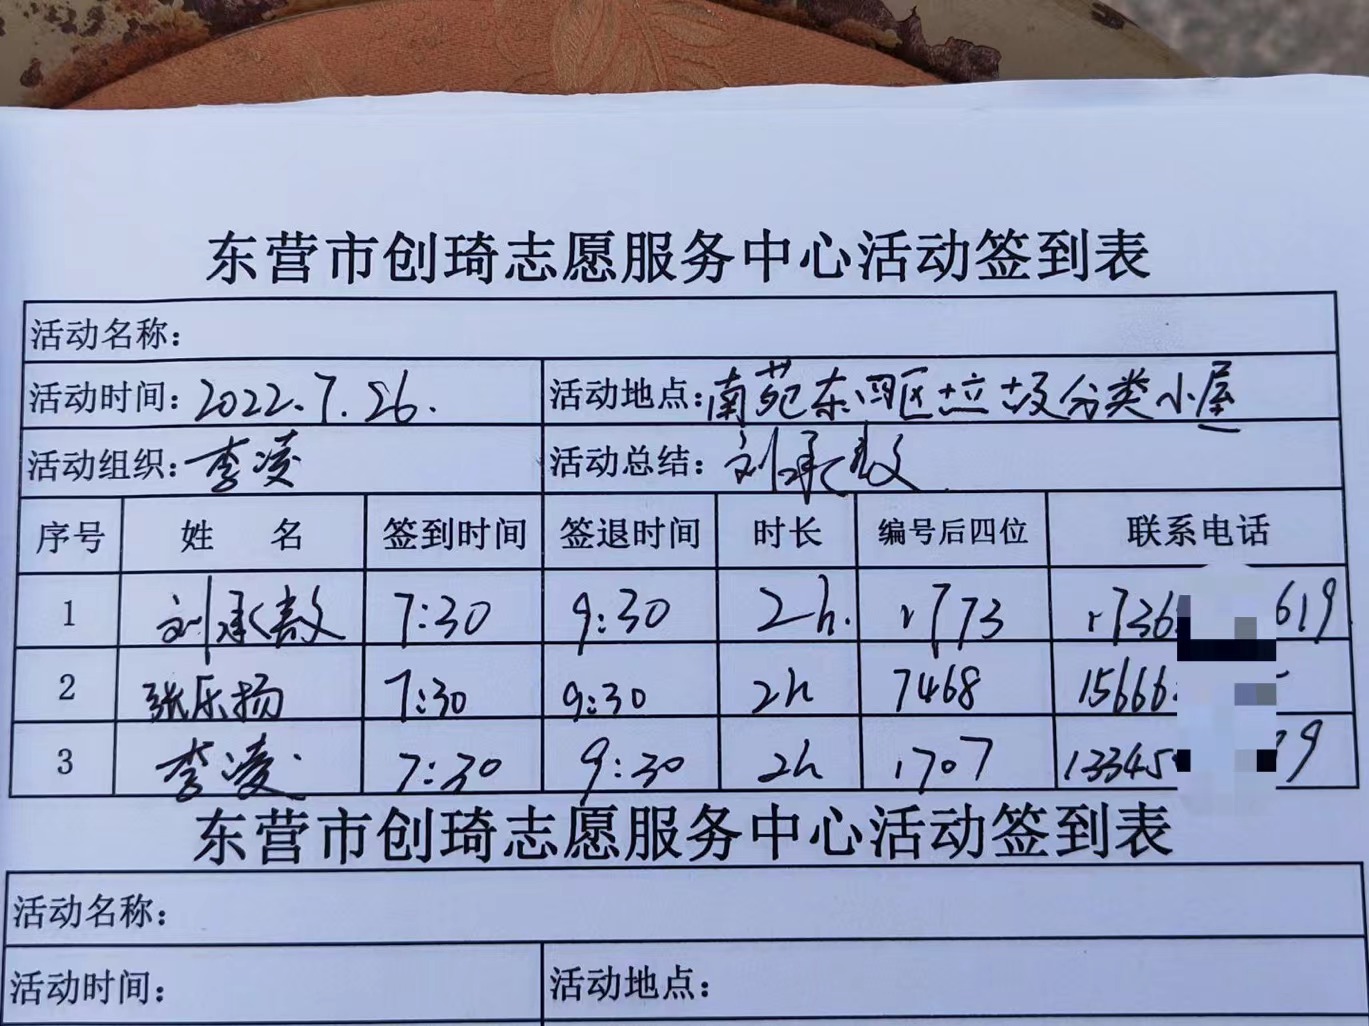 东营市创琦志愿服务中心活动签到表
活动名称：
活动时间：2022.7.26. 活动地点：南苑东区垃圾分类小屋
活动组织：李凌 活动总结：刘承敖
序号 姓 名 签到时间 签退时间 时长 编号后四位 联系电话
1 刘承敖 7:30 9:30 2h. 1773 1736 619
2 张乐扬 7:30 9:30 2h 7468 15666
3 李凌 7:30 9:30 2h 1707 13345 9
东营市创琦志愿服务中心活动签到表
活动名称：
活动时间： 活动地点：